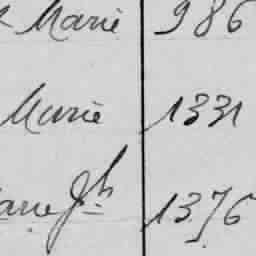 Marie 986
Marie 1331
Jh 1376